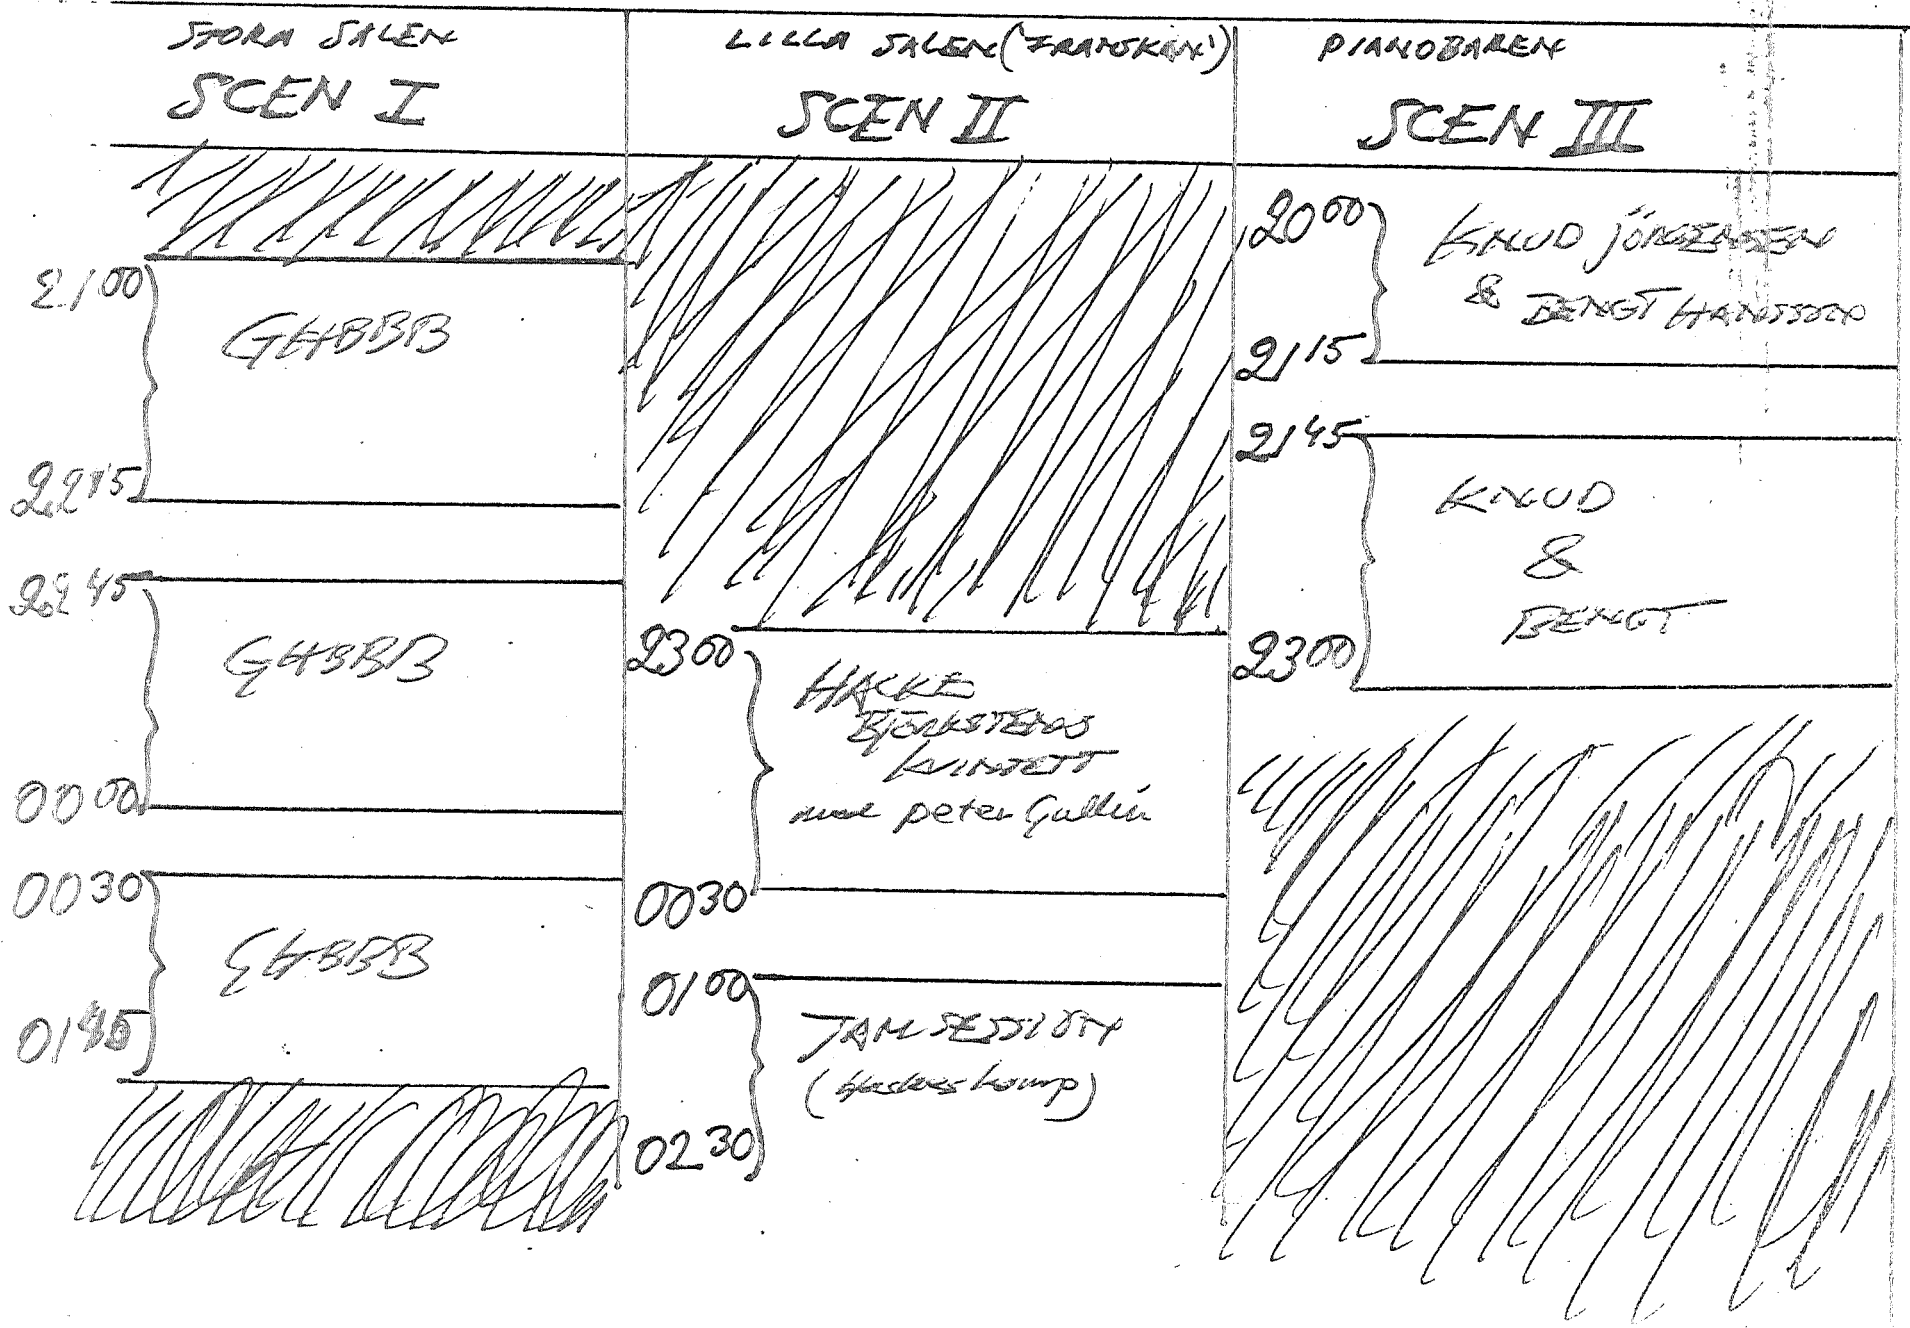 STORA SALEN
SCEN I
2100
GHBBB
2215
2245
GHBBB
0000
0030
GHBBB
0145
LILLA SALEN ('FRANSKAN')
SCEN II
2300
HACKE
BJÖRKSTENS
KVINTETT
med peter Gullin
0030
0100
JAM SESSION
(Hackes komp)
0230
PIANOBAREN
SCEN III
2000
KNUD JÖRGENSEN
& BENGT HANSSON
2115
2145
KNUD
&
BENGT
2300